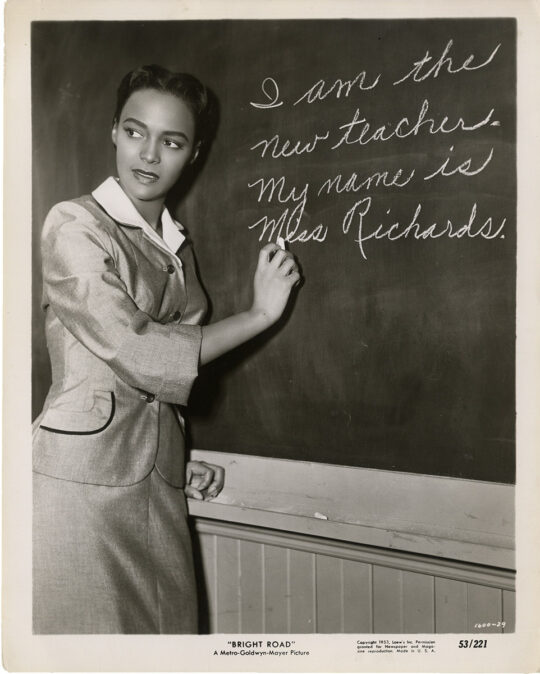 I am the
new teacher.
My name is
Miss Richards.
1600-29
"BRIGHT ROAD"
A Metro-Goldwyn-Mayer Picture
Copyright 1953, Loew's Inc. Permission
granted for Newspaper and Maga-
zine reproduction. Made in U. S. A.
53/221